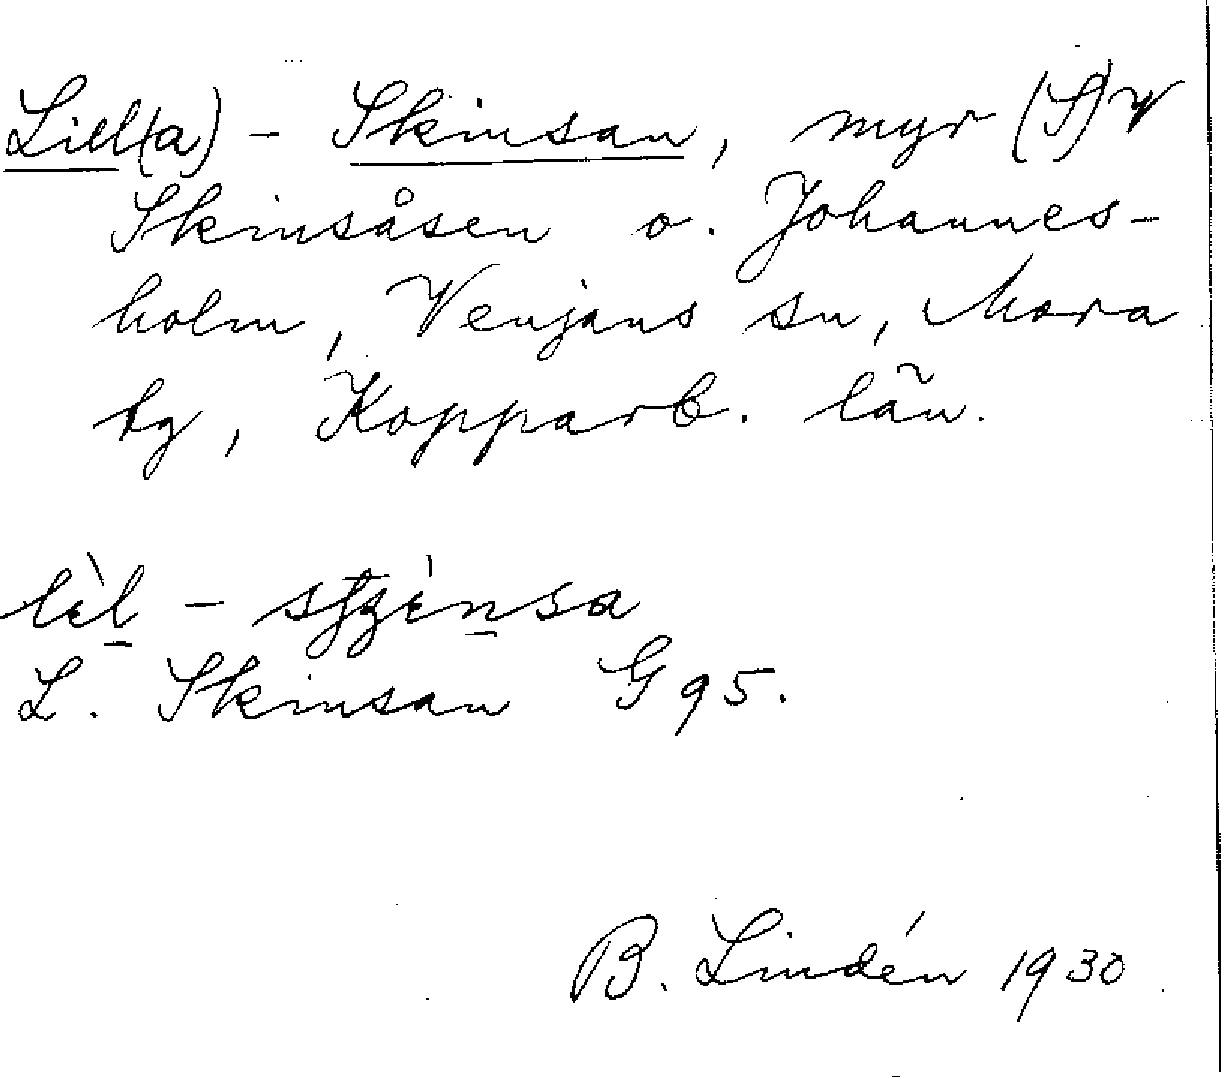 Lill(a) - Skinsan, myr (S)V
Skinsåsen o. Johannes-
holm, Venjans sn, Mora
tg, Kopparb. län.
lèl -
L. Skinsan G 95.
B. Lindén 1930